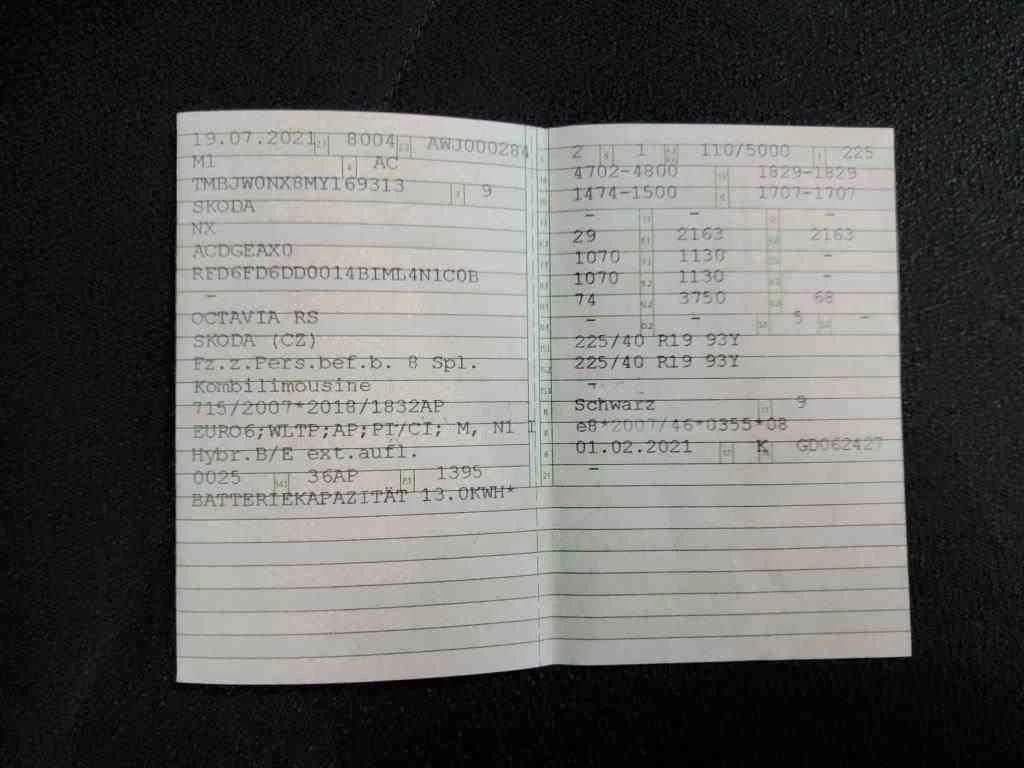 19.07.2021 8004 AWJ000284
M1 AC
TMBJW0NX8MY169313 9
SKODA
NX
ACDGEAX0
RFD6FD6DD0014BIML4N1C0B
-
OCTAVIA RS
SKODA (CZ)
Fz.z.Pers.bef.b. 8 Spl.
Kombilimousine
715/2007*2018/1832AP
EURO6;WLTP;AP;PI/CI; M, N1 I
Hybr.B/E ext.aufl.
0025 36AP 1395
BATTERIEKAPAZITÄT 13.0KWH*
2 1 110/5000 225
4702-4800 1829-1829
1474-1500 1707-1707
- - -
29 2163 2163
1070 1130 -
1070 1130 -
74 3750 68
- - 5 -
225/40 R19 93Y
225/40 R19 93Y
-
Schwarz 9
e8*2007/46*0355*08
01.02.2021 K GD062427
-